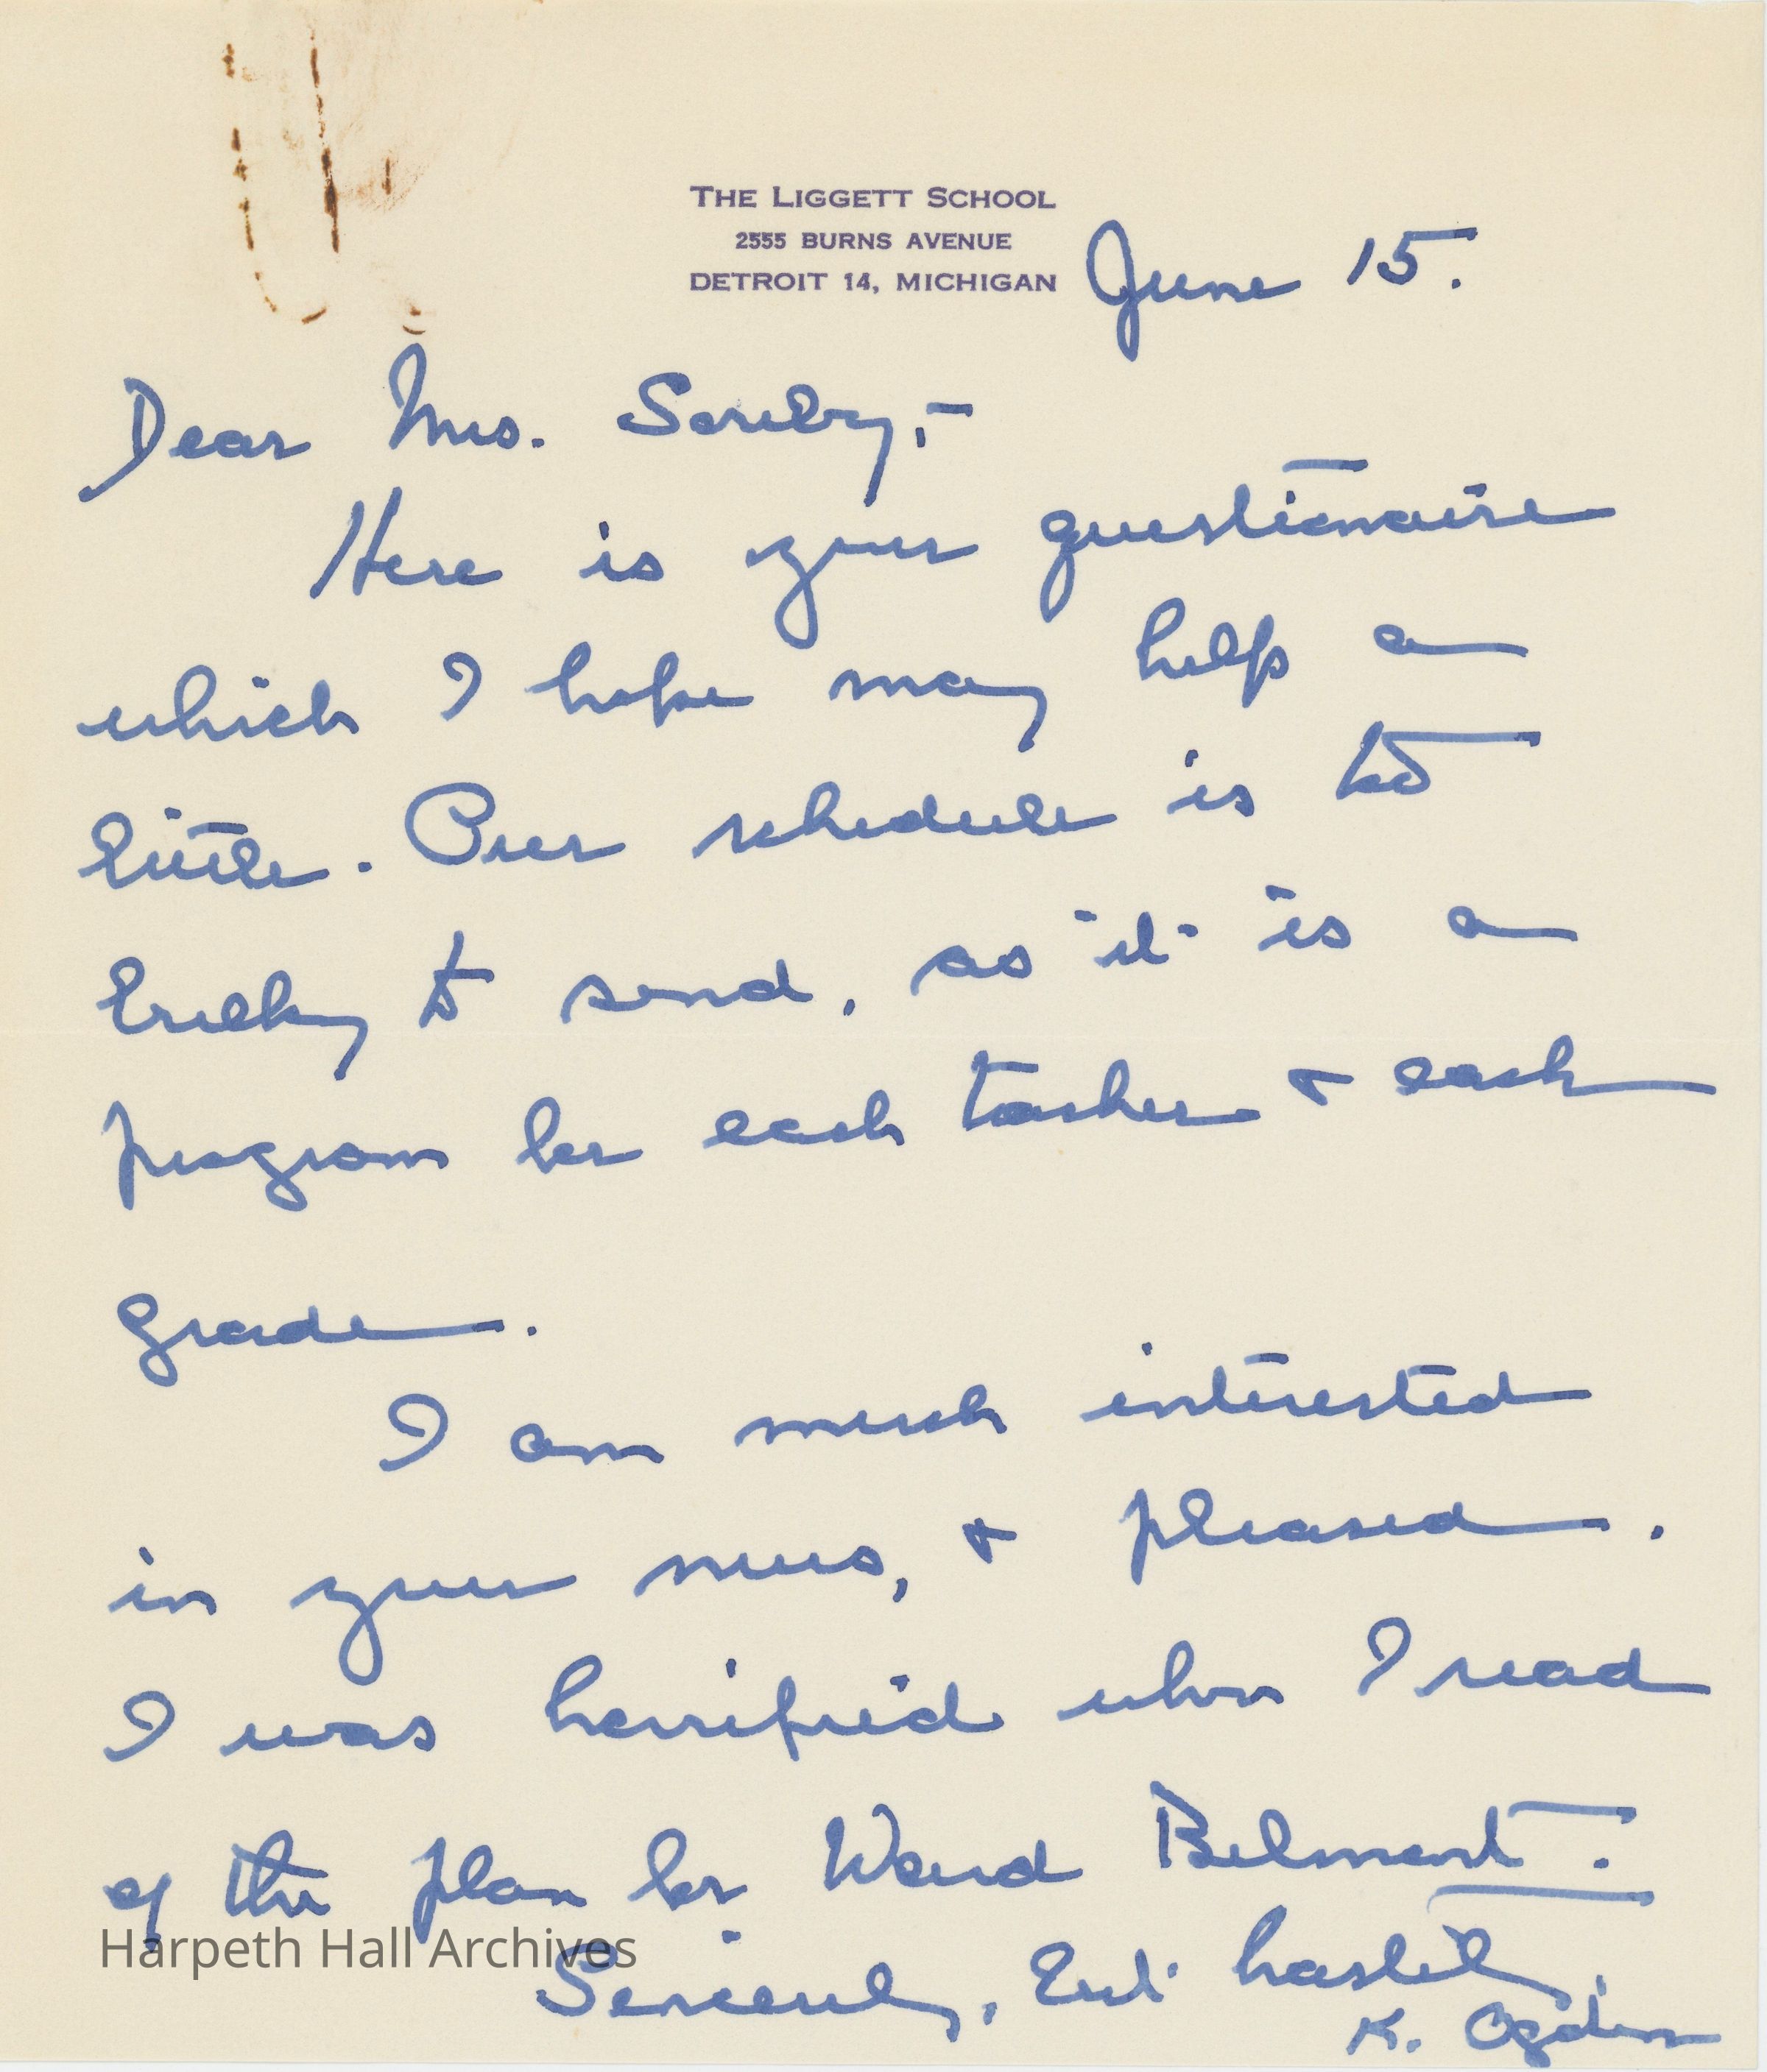 THE LIGGETT SCHOOL
2555 BURNS AVENUE
DETROIT 14, MICHIGAN
June 15.
Dear Mrs. Souby,-
Here is your questionaire
which I hope may help a
little. Our schedule is too
bulky to send, as it is a
program for each teacher & each
grade.
I am much interested
in your news, & pleased.
I was horrified when I read
of the plan for Ward Belmont.
Sincerely, but hastily,
K. Ogden
Harpeth Hall Archives